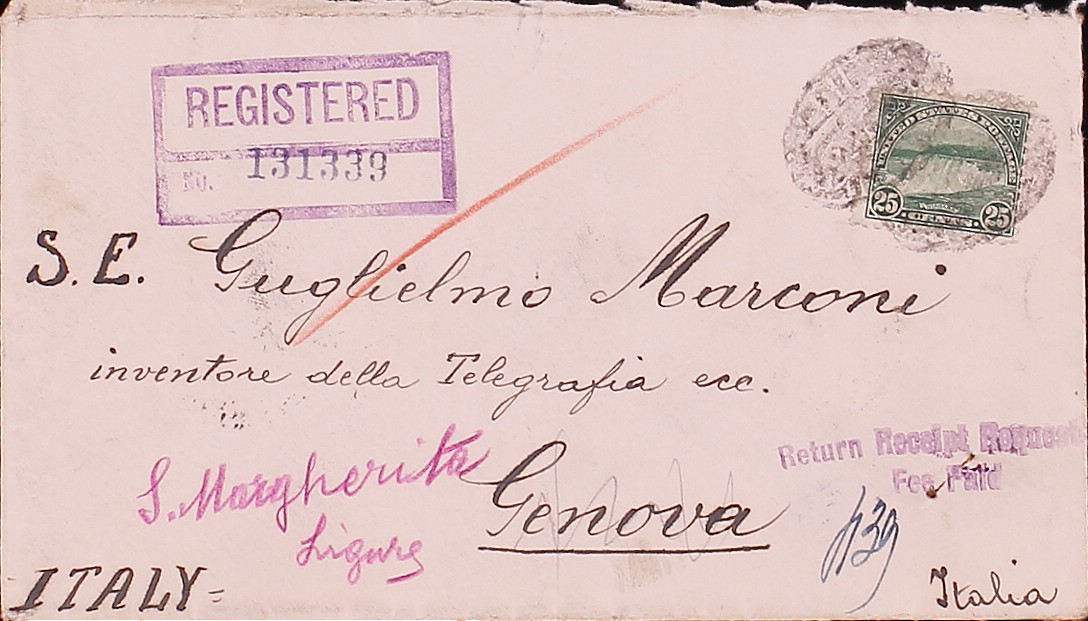 REGISTERED
No. 131339
UNITED STATES POSTAGE
25 CENTS 25
S. E. Guglielmo Marconi
inventore della Telegrafia ecc.
S. Margherita
Ligure
Genova
Return Receipt Request
Fee Paid
439
ITALY =
Italia